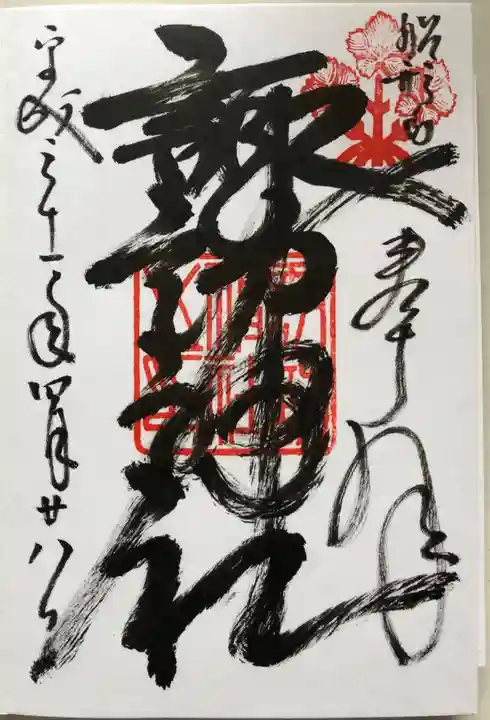 船形山
奉拝
諏訪神社
平成三十一年四月廿八日